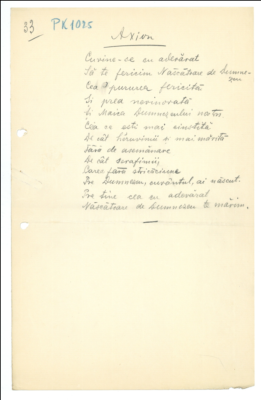 33
PK1085
Axion
Cuvine-se cu adevărat
Să te fericim Născătoare de Dumne-
zeu
Cea pururea fericită
Și prea nevinovată
Și Maica Dumnezeului nostru
Ceea ce ești mai cinstită
De cât heruvimii și mai mărită
Fără de asemănare
De cât serafimii,
Care fără stricăciune
Pre Dumnezeu, cuvântul, ai născut.
Pre tine cea cu adevărat
Născătoare de Dumnezeu te mărim.